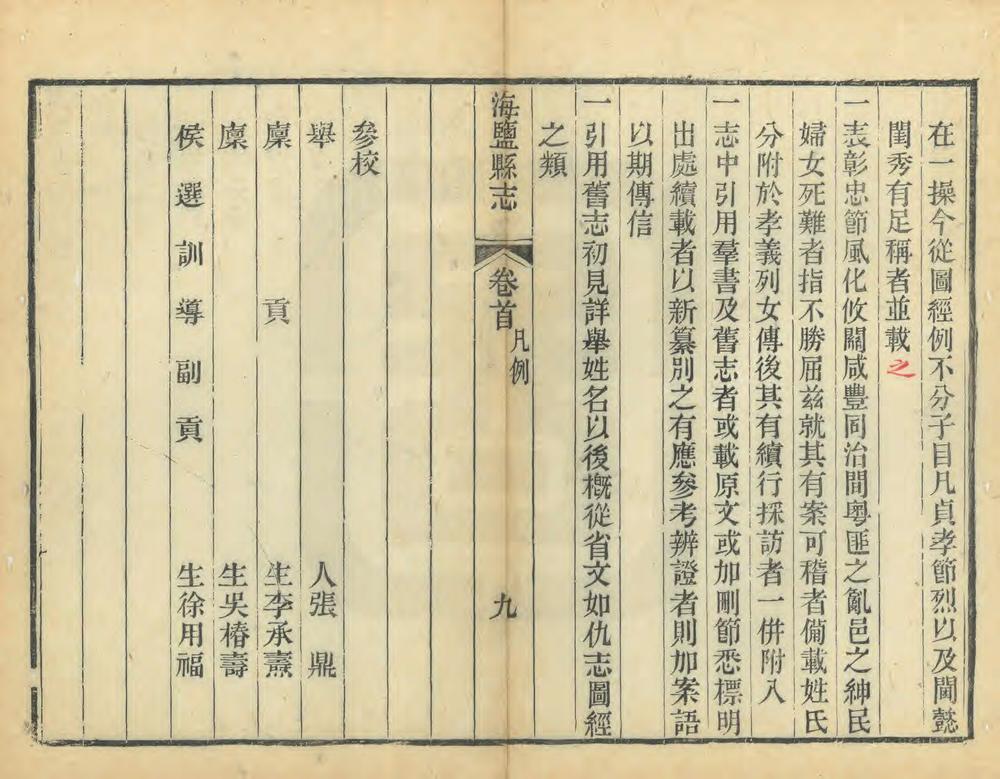 在一操今從圖經例不分子目凡貞孝節烈以及閫懿
閨秀有足稱者並載之
一表彰忠節風化攸關咸豐同治間粵匪之亂邑之紳民
婦女死難者指不勝屈茲就其有案可稽者備載姓氏
分附於孝義列女傳後其有續行採訪者一併附入
一志中引用羣書及舊志者或載原文或加刪節悉標明
出處續載者以新纂別之有應參考辨證者則加案語
以期傳信
一引用舊志初見詳舉姓名以後概從省文如仇志圖經
之類
海鹽縣志 卷首 凡例 九
參校
舉人張鼎
廩貢生李承燾
廩生吳椿壽
候選訓導副貢生徐用福